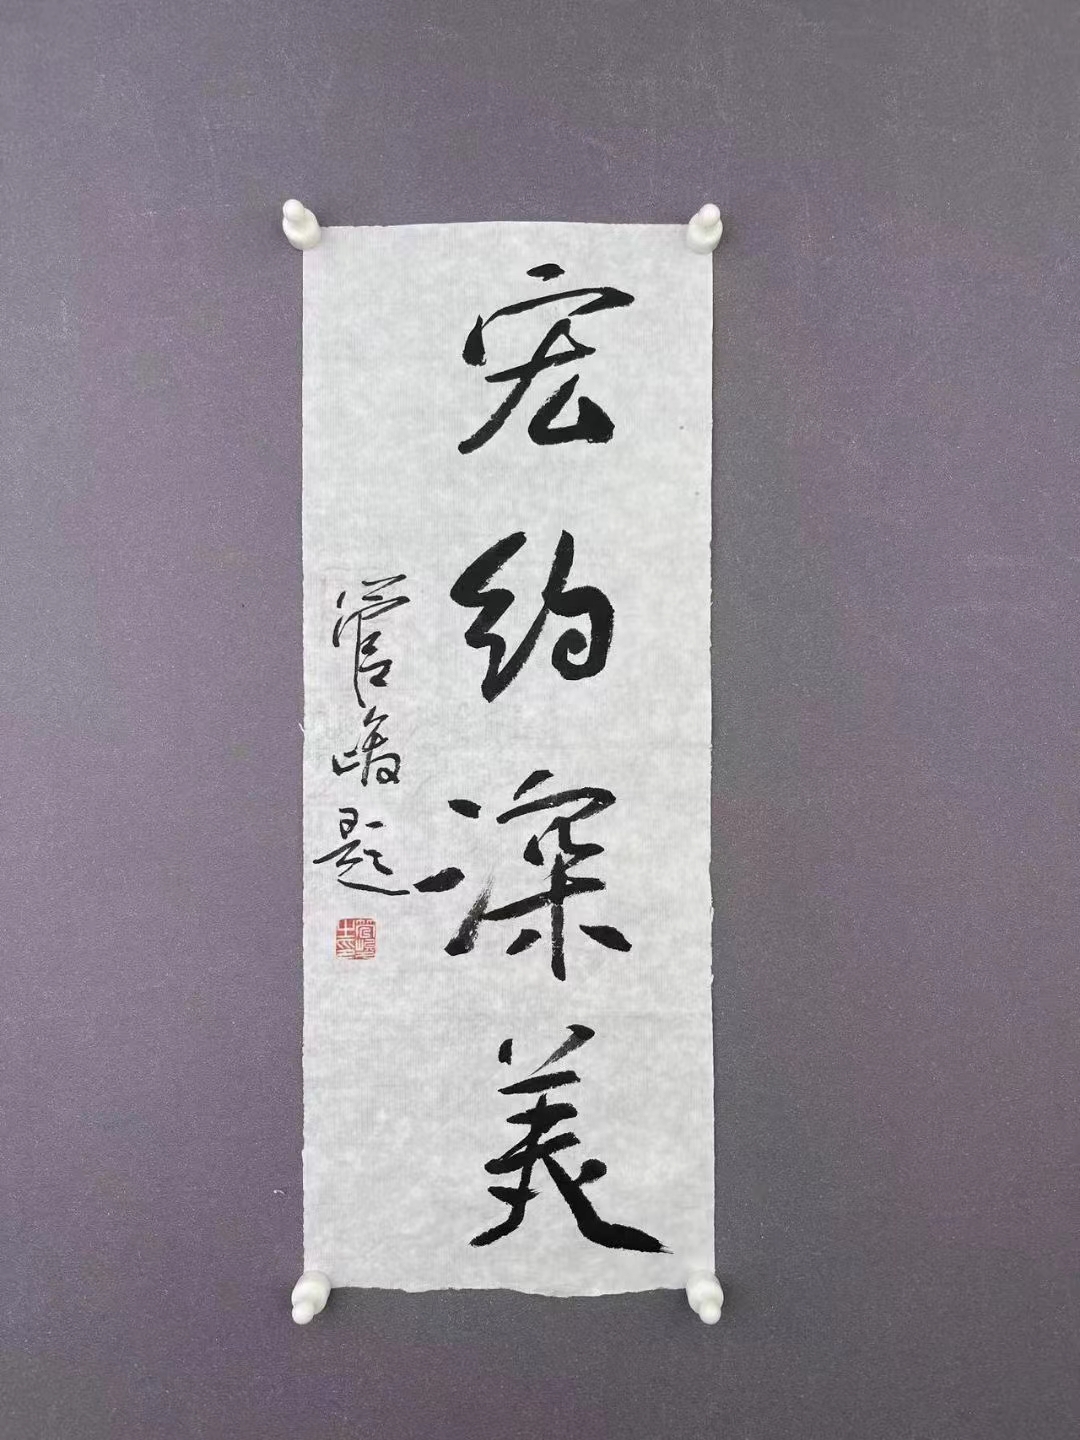 宏约深美
管峻题